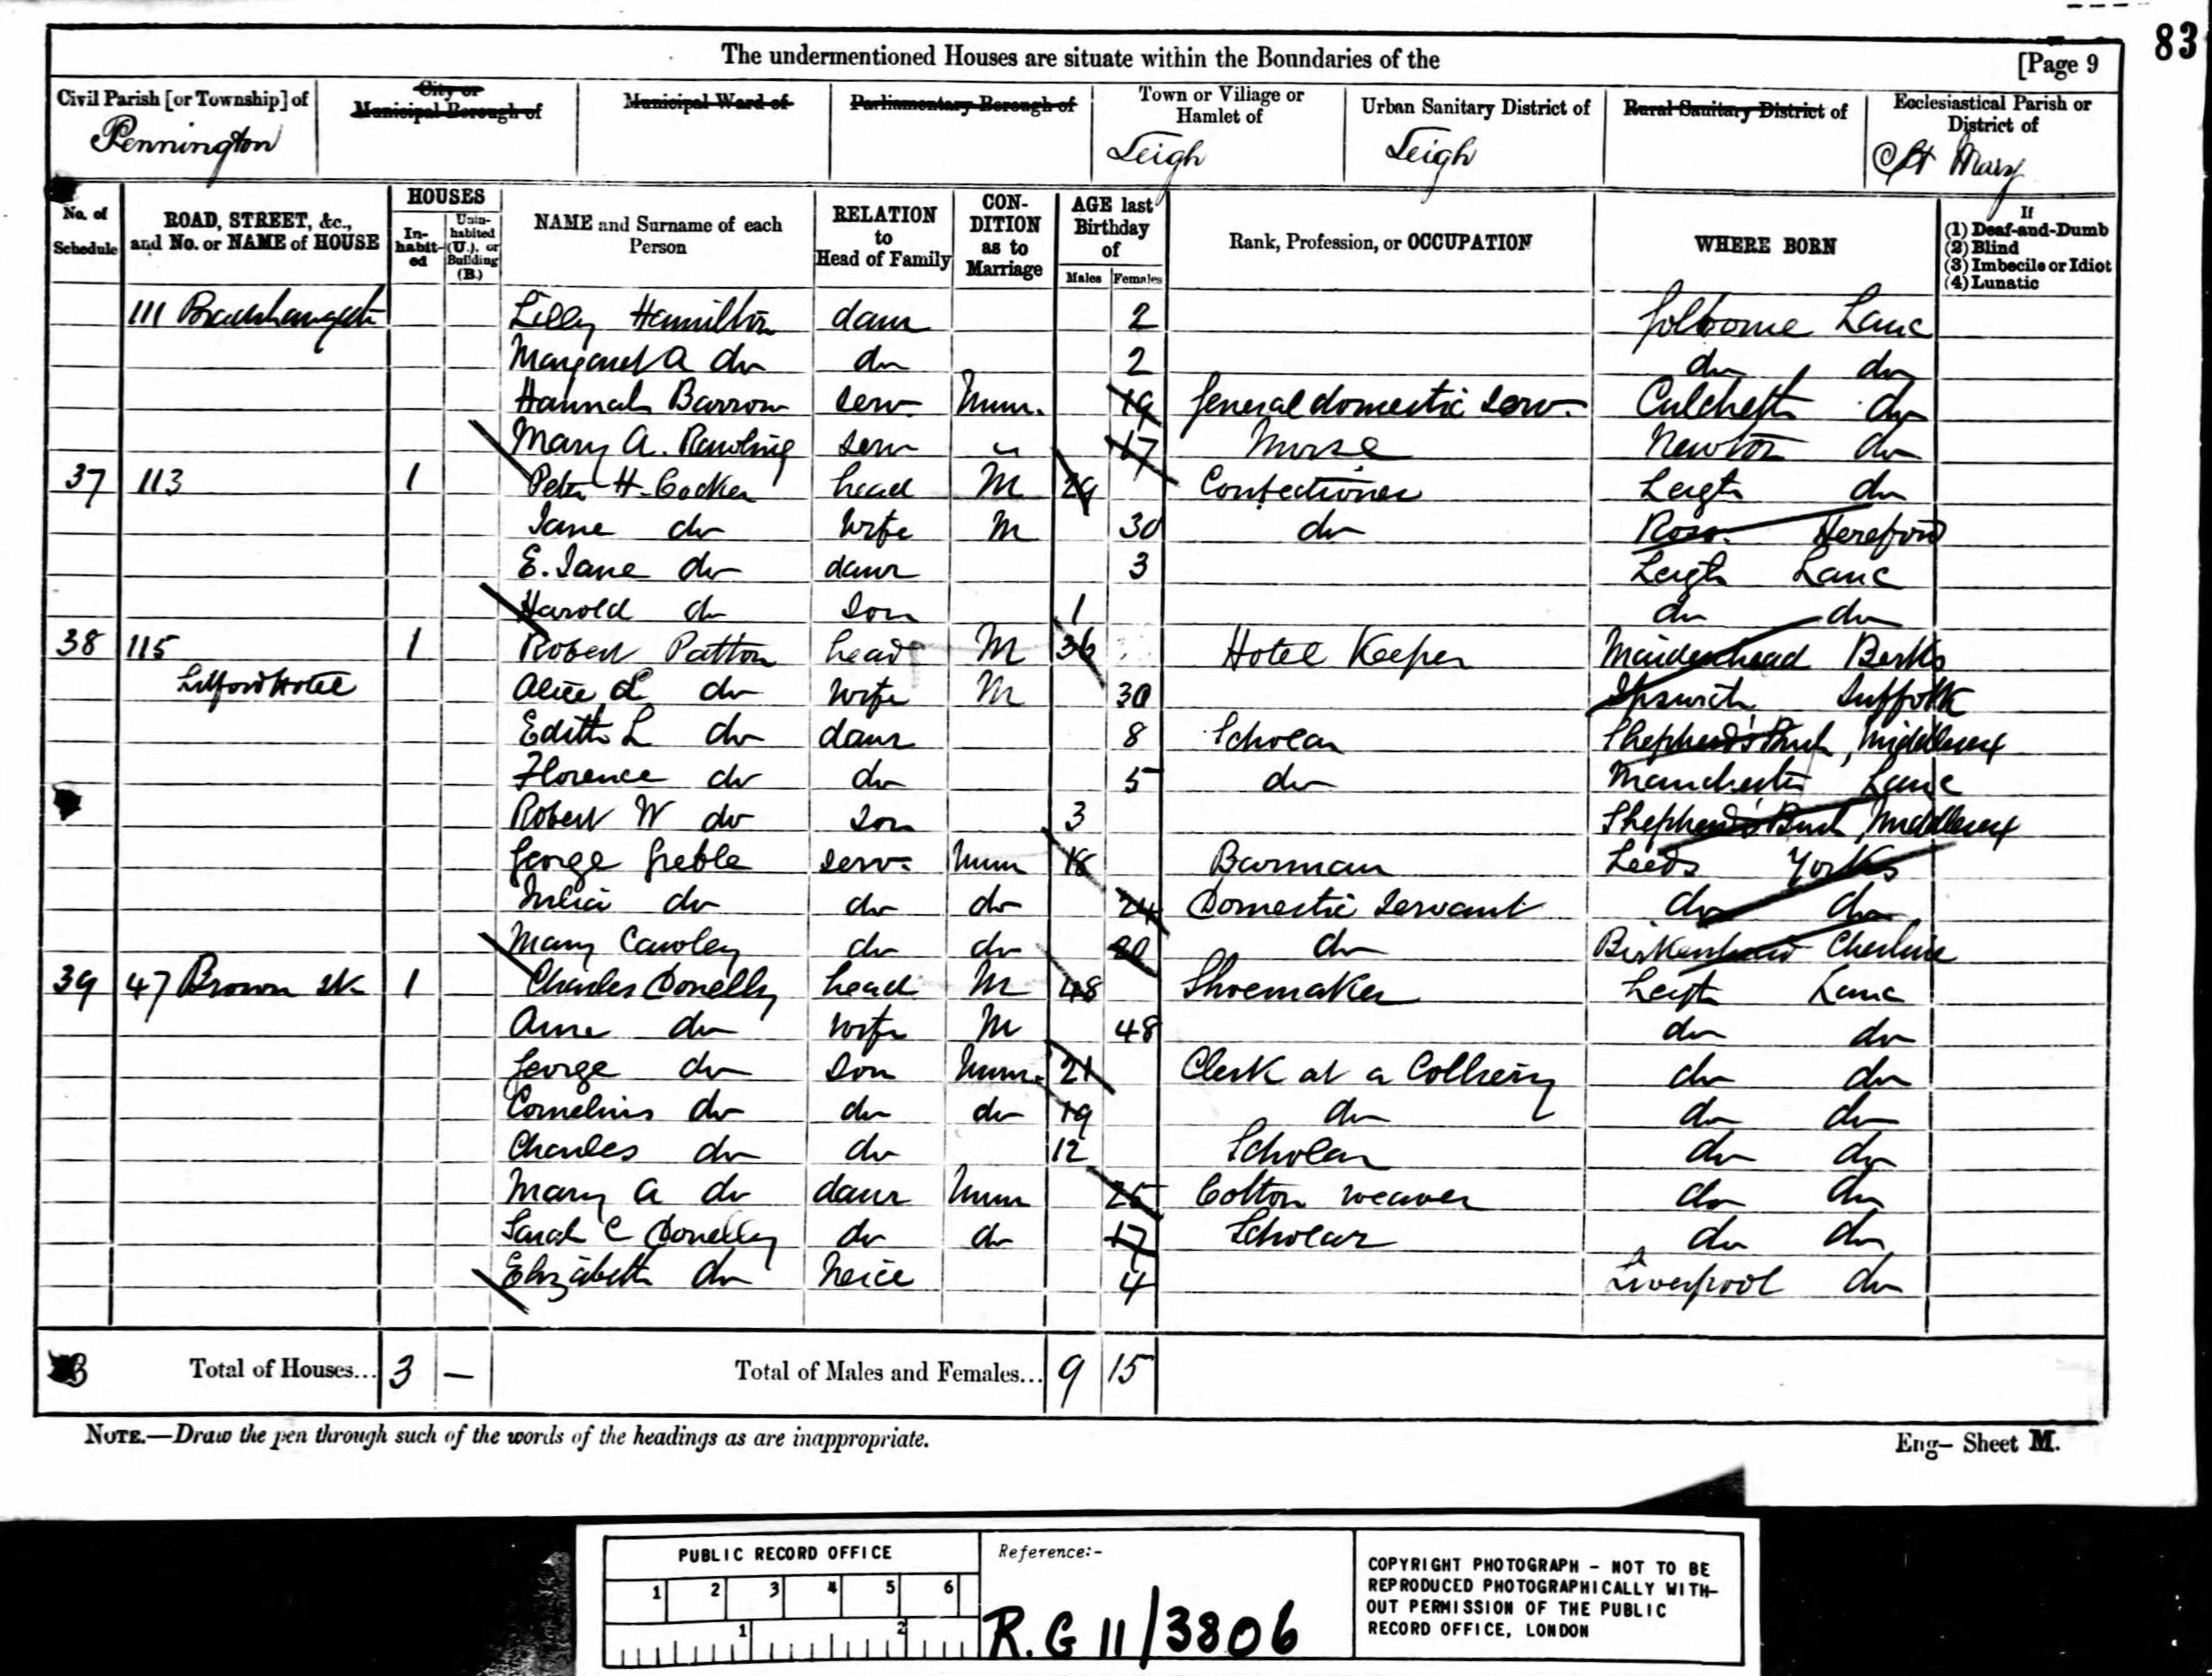 83
The undermentioned Houses are situate within the Boundaries of the [Page 9
Civil Parish [or Township] of City or Municipal Borough of Municipal Ward of Parliamentary Borough of Town or Village or Hamlet of Urban Sanitary District of Rural Sanitary District of Ecclesiastical Parish or District of
Pennington Leigh Leigh St Mary
No. of Schedule ROAD, STREET, &c., and No. or NAME of HOUSE HOUSES In-habit-ed Unin-habited (U.), or Building (B.) NAME and Surname of each Person RELATION to Head of Family CON-DITION as to Marriage AGE last Birthday of Males Females Rank, Profession, or OCCUPATION WHERE BORN If (1) Deaf-and-Dumb (2) Blind (3) Imbecile or Idiot (4) Lunatic
111 Lilly Hamilton daur 2 Golborne Lanc
Margaret A do do 2 do do
Hannah Barrow serv Unm. 19 General domestic serv. Culcheth do
Mary A. Rawling serv 17 Nurse Newton do
37 113 1 Peter H. Cocker head M 29 Confectioner Leigh do
Jane do Wife M 30 do Ross. Hereford
E. Jane do daur 3 Leigh Lanc
Harold do Son 1 do do
38 115 1 Robert Patton head M 36 Hotel Keeper Maidenhead Berks
Lilford Hotel Alice L do Wife M 30 Ipswich Suffolk
Edith L do daur 8 Scholar Shepherd's Bush, Middlesex
Florence do do 5 do Manchester Lanc
Robert W do Son 3 Shepherd's Bush, Middlesex
George Greble serv. Unm 18 Barman Leeds Yorks
Julia do do do 24 Domestic Servant do do
Mary Cawley do do 20 do Birkenhead Cheshire
39 47 Brown St 1 Charles Donelly head M 48 Shoemaker Leigh Lanc
Anne do Wife M 48 do do
George do Son Unm. 21 Clerk at a Colliery do do
Cornelius do do do 19 do do do
Charles do do 12 Scholar do do
Mary A do daur Unm 25 Cotton weaver do do
Sarah C Donelly do do 17 Scholar do do
Elizabeth do Neice 4 Liverpool do
3 Total of Houses... 3 — Total of Males and Females... 9 15
NOTE.—Draw the pen through such of the words of the headings as are inappropriate. Eng- Sheet M.
PUBLIC RECORD OFFICE
1 2 3 4 5 6
1 2
Reference:-
R.G 11/3806
COPYRIGHT PHOTOGRAPH - NOT TO BE
REPRODUCED PHOTOGRAPHICALLY WITH-
OUT PERMISSION OF THE PUBLIC
RECORD OFFICE, LONDON